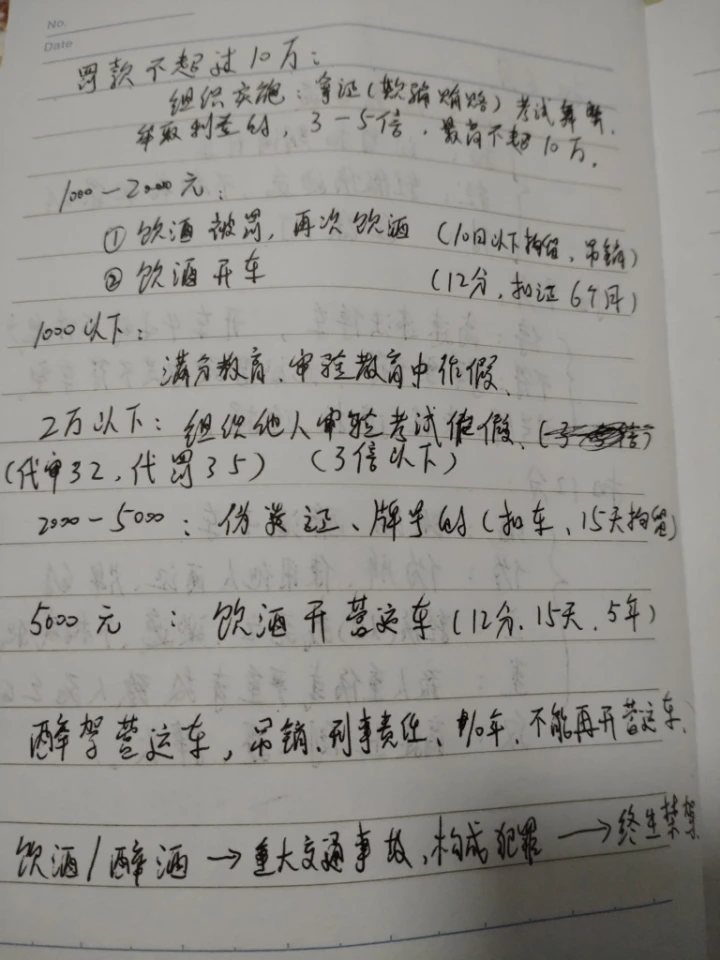 No.
Date
罚款不超过10万:
组织实施:拿证(欺骗贿赂)考试舞弊.
牟取利益的,3-5倍,最高不超10万.
1000-2000元:
①饮酒被罚,再次饮酒(10日以下拘留、吊销)
②饮酒开车(12分,扣证6个月)
1000以下:
满分教育、审验教育中作假、
2万以下:组织他人审验考试作假、
(代审32,代罚35)(3倍以下)
2000-5000:伪装证、牌号的(扣车、15天拘留)
5000元:饮酒开营运车(12分.15天.5年)
醉驾营运车,吊销、刑事责任、10年、不能再开营运车.
饮酒/醉酒→重大交通事故,构成犯罪→终生禁驾